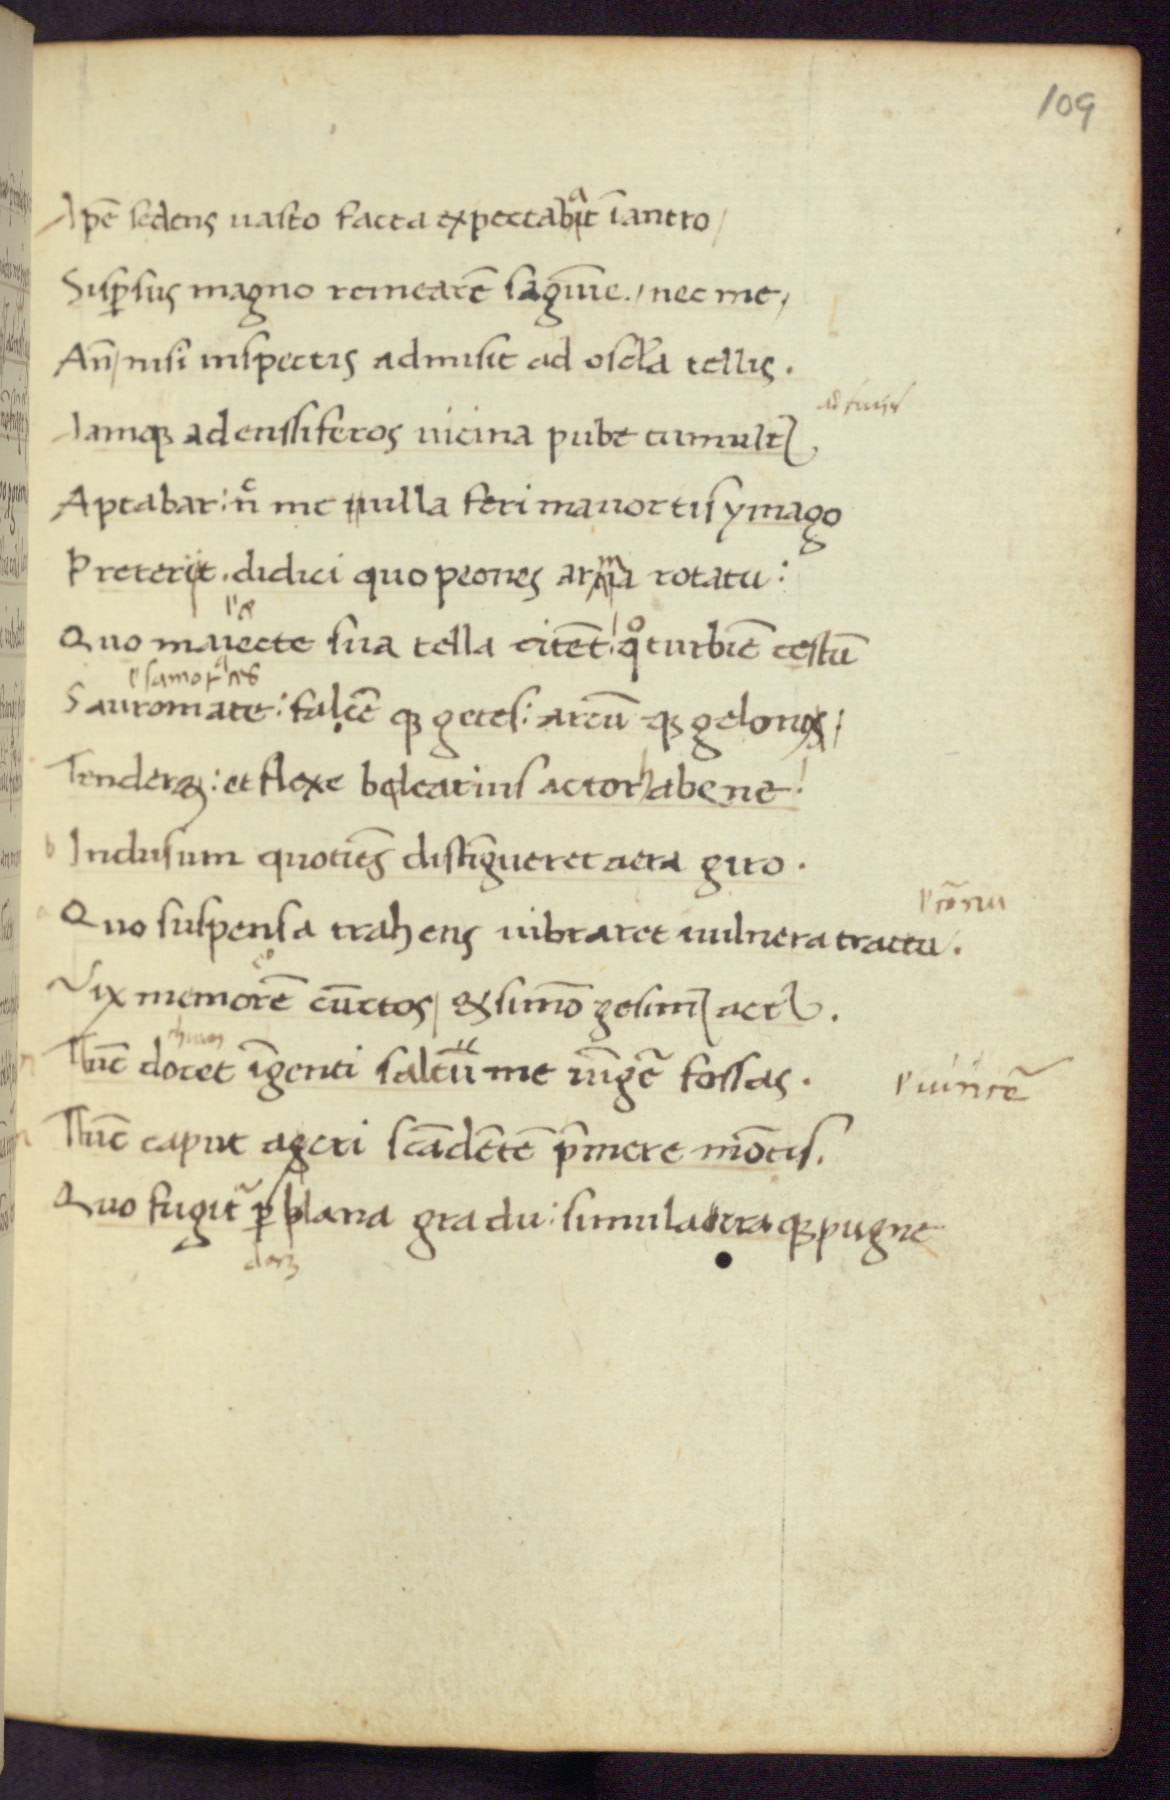 109
Apē sedens uasto facta expectabit īantro
a
Sispsus magno remearē sāguīe. nec me
An̄ nisi inspectis admisit ad oscła tellis.
Iamqȝ ad enssiferos uicina pube tumult
Aptabar: n̄ me nulla feri mauortis ymago
Preteriit. didici quo peones arma rotatu:
Quo maiecte sua tella citēt qͦ turbīe cestū
Sauromate: falcē qȝ getes: arcū qȝ gelonus
Tenderȝ: et flexe belearius actor habene
b Indusum quotiēs distīgueret aera giro.
a Quo suspensa trahens uibraret uulnera tractu.
Vix memorē cūctos, etsi mō gesim act.
Tūc docet īgenti saltū me iūgē fossas.
Tūc caput ageri scādētē p̄mere mōtis.
Quo fugit p plana gradu: simulacra qȝ pugne